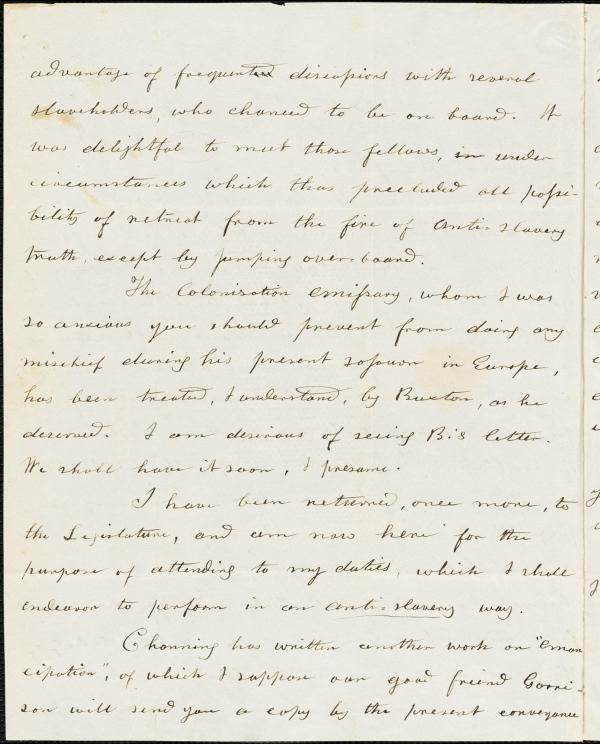 advantage of frequent discussions with several
slaveholders, who chanced to be on board. It
was delightful to meet those fellows, in under
circumstances which thus precluded all possi-
bility of retreat from the fire of Anti-slavery
truth, except by jumping over-board.
The Colonization emissary, whom I was
so anxious you should prevent from doing any
mischief during his present sojourn in Europe,
has been treated, I understand, by Buxton, as he
deserved. I am desirous of seeing B.'s letter.
We shall have it soon, I presume.
I have been returned, once more, to
the Legislature, and am now here for the
purpose of attending to my duties, which I shall
endeavor to perform in an anti-slavery way.
Channing has written another work on "Eman
cipation", of which I suppose our good friend Garri-
son will send you a copy by the present conveyance